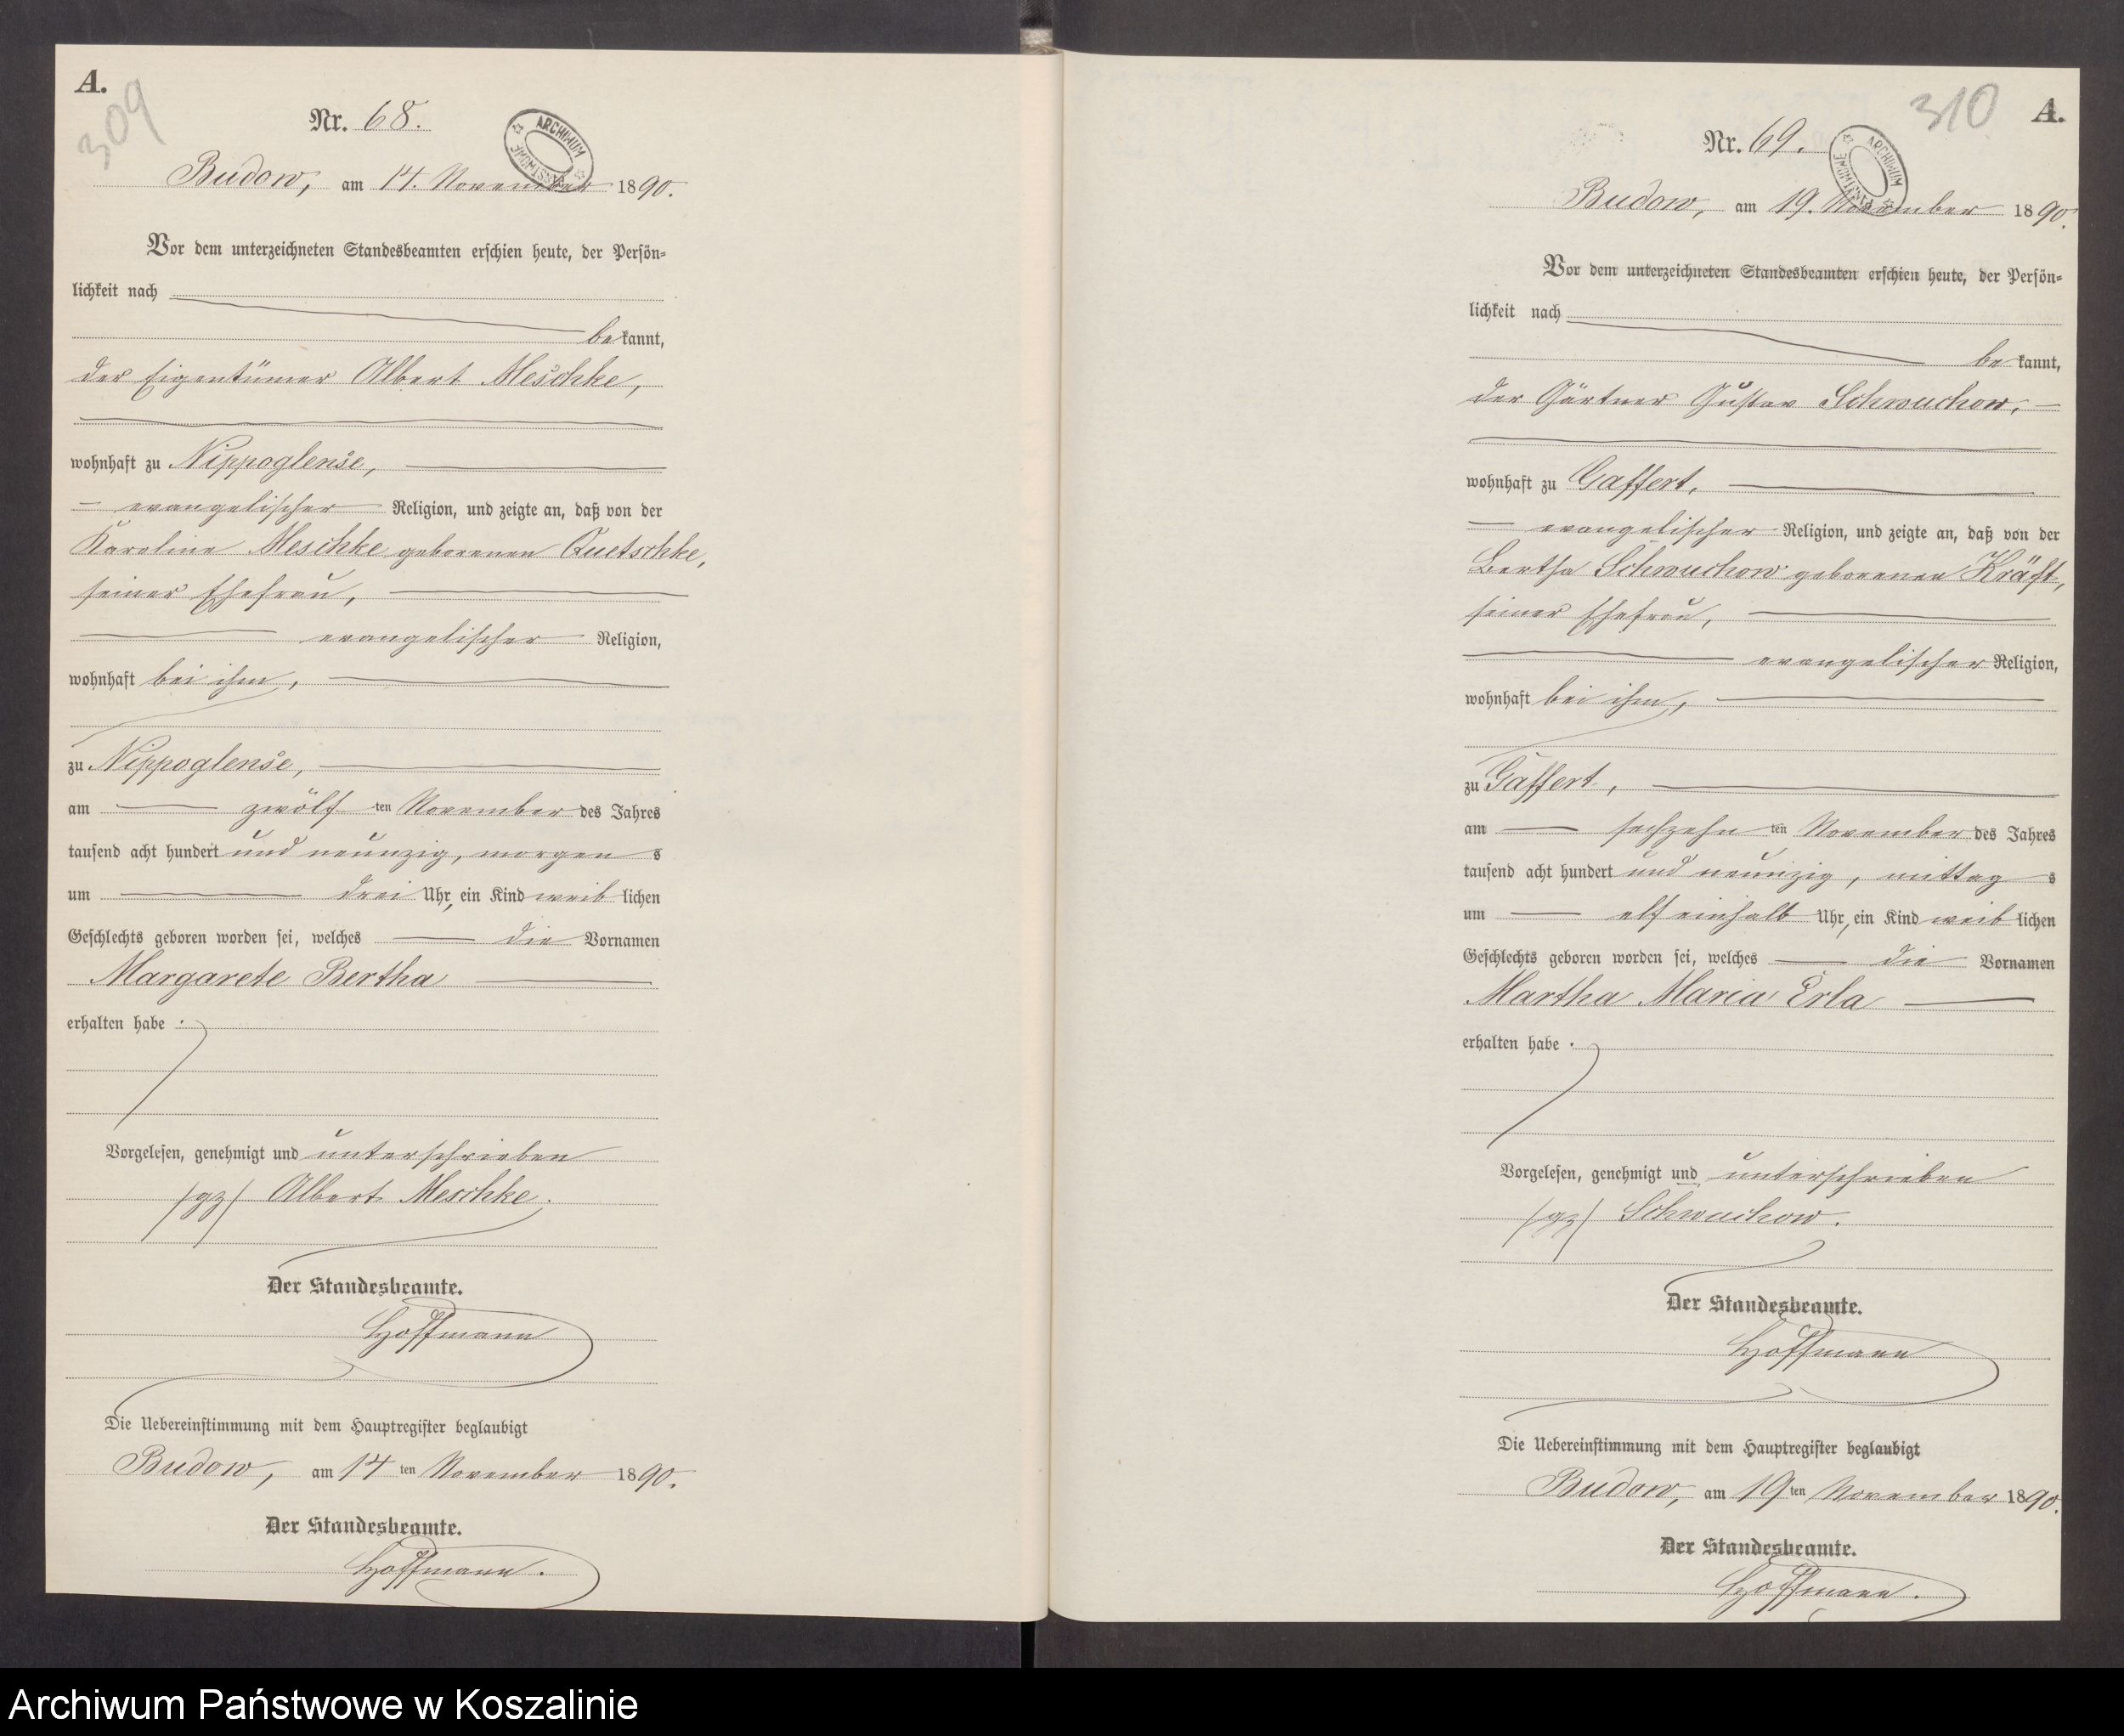 A.
309
Nr. 68.
ARCHIWUM PAŃSTWOWE
Budow, am 14. November 1890.
Vor dem unterzeichneten Standesbeamten erschien heute, der Persön-
lichkeit nach
bekannt,
der Eigentümer Albert Meschke,
wohnhaft zu Nippoglense,
evangelischer Religion, und zeigte an, daß von der
Karoline Meschke geborenen Quetschke,
seiner Ehefrau,
evangelischer Religion,
wohnhaft bei ihm,
zu Nippoglense,
am zwölf ten November des Jahres
tausend acht hundert und neunzig, morgen s
um drei Uhr, ein Kind weiblichen
Geschlechts geboren worden sei, welches die Vornamen
Margarete Bertha
erhalten habe.
Vorgelesen, genehmigt und unterschrieben
/gz/ Albert Meschke.
Der Standesbeamte.
Hoffmann
Die Uebereinstimmung mit dem Hauptregister beglaubigt
Budow, am 14 ten November 1890.
Der Standesbeamte.
Hoffmann.
310
A.
Nr. 69.
ARCHIWUM PAŃSTWOWE
Budow, am 19. November 1890.
Vor dem unterzeichneten Standesbeamten erschien heute, der Persön-
lichkeit nach
bekannt,
der Gärtner Gustav Schwuchow,
wohnhaft zu Gaffert,
evangelischer Religion, und zeigte an, daß von der
Bertha Schwuchow geborenen Kräft,
seiner Ehefrau,
evangelischer Religion,
wohnhaft bei ihm,
zu Gaffert,
am sechzehn ten November des Jahres
tausend acht hundert und neunzig, mittag s
um elf einhalb Uhr, ein Kind weiblichen
Geschlechts geboren worden sei, welches die Vornamen
Martha Maria Erla
erhalten habe.
Vorgelesen, genehmigt und unterschrieben
/gz/ Schwuchow.
Der Standesbeamte.
Hoffmann
Die Uebereinstimmung mit dem Hauptregister beglaubigt
Budow, am 19 ten November 1890.
Der Standesbeamte.
Hoffmann.
Archiwum Państwowe w Koszalinie